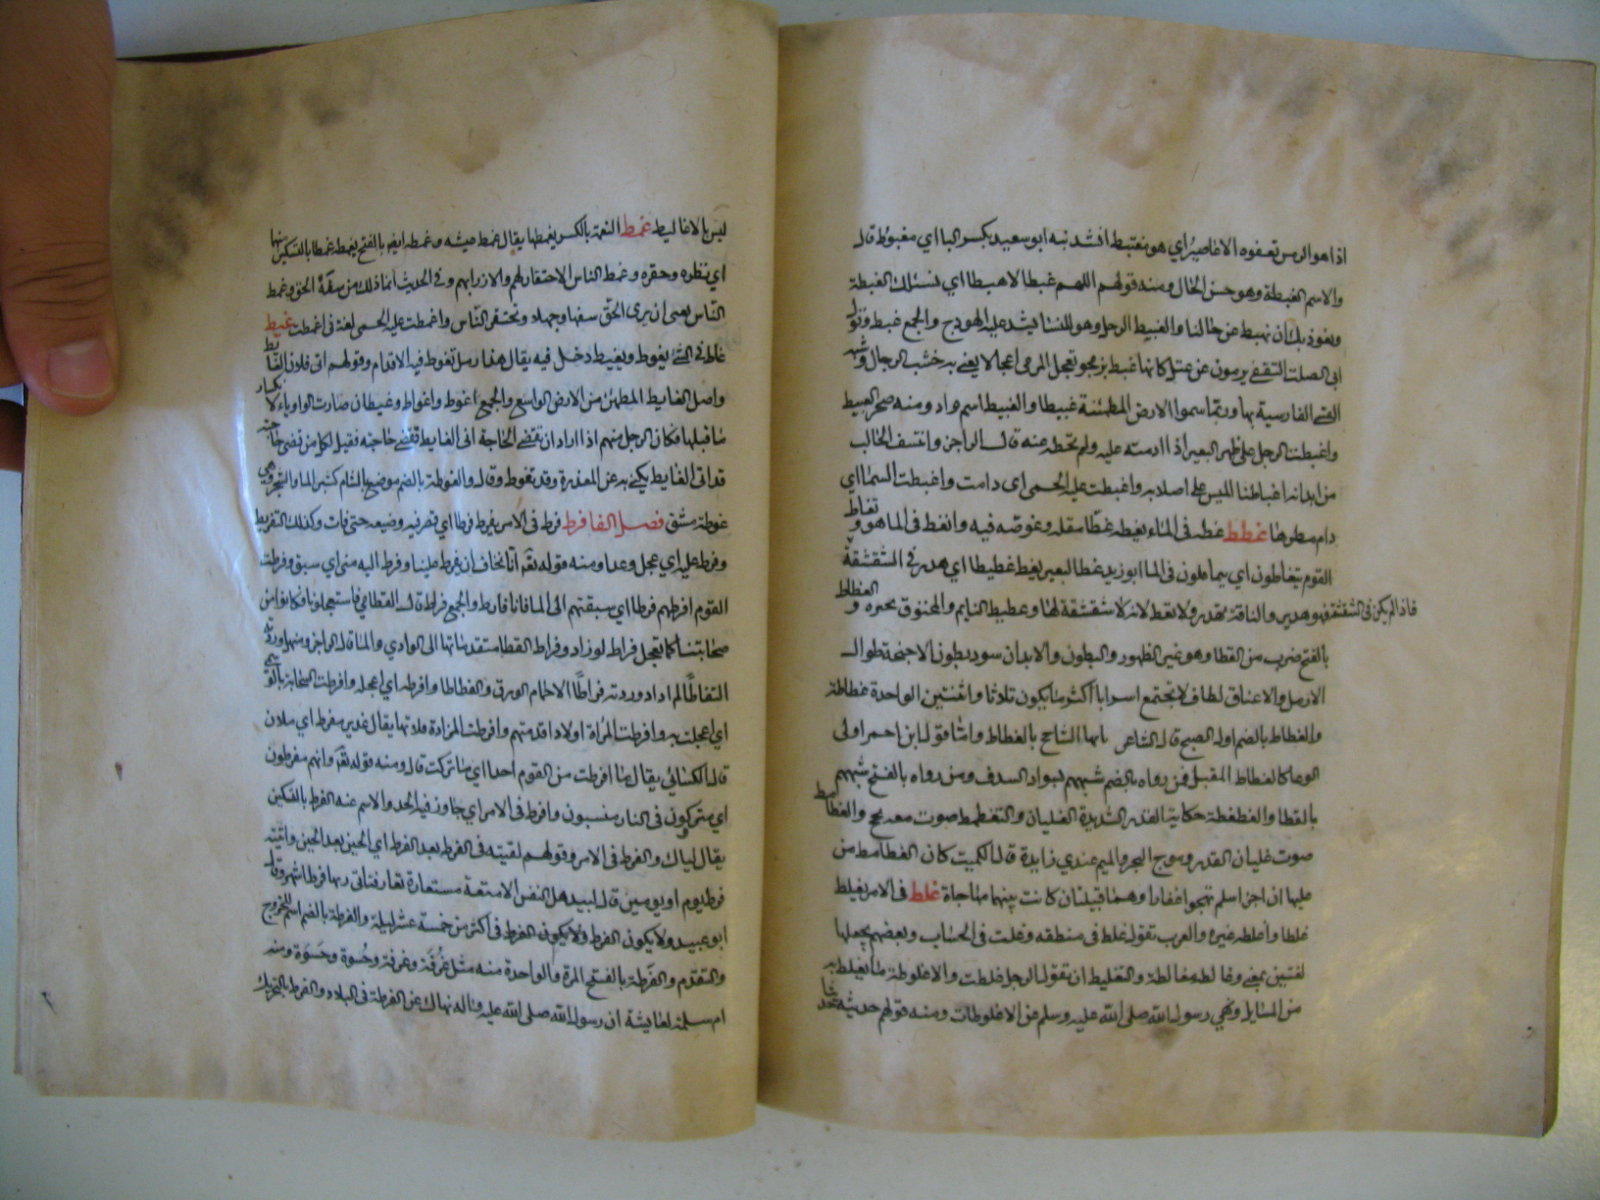 اذا هو الرمس تعفوه الاعاصير اي هو مغتبط انشدنيه ابو سعيد بكسر الباا اي مغبوط قال
والاسم الغبطة وهو حسن الحال ومنه قولهم اللهم غبطا لا هبطا اي نسئلك الغبطة
ونعوذ بك ان نهبط عن حالنا والغبيط الرحل وهو للنسا يشد عليه الهودج والجمع غبط وقول
ابى الصلت الثقفي يرمون عن عتل كانها غبط بزمجر يعجل المرمى اعجالا يعني به خشب الرحال وشبه
القسي الفارسية بها وربما سموا الارض المطمئنة غبيطا والغبيط اسم واد ومنه صحرا الغبيط
واغبطت الرحل على ظهر البعير اذا ادمته عليه ولم تحطه عنه قال الراجز وانتسف الجالب
من اندابه اغباطنا الميس على اصلابه واغبطت عليه الحمى اى دامت واغبطت السما اي
دام مطرها غطط غطه فى الماء يغطه غطا مقله وغوصه فيه وانغط فى الما هو وتغاط
القوم يتغاطون اي يتماقلون فى الما ابو زيد غط البعير يغط غطيطا اي هدر في الشقشقة
فاذا لم يكن فى الشقشقة فهو هدير والناقة تهدر ولا تغط لانه لا شقشقة لها وغطيط النايم والمخنوق نخيره والغطاط
بالفتح ضرب من القطا وهو غبر الظهور والبطون والابدان سود بطون الاجنحة طوال
الارجل والاعناق لطاف لا تجتمع اسرابا اكثر ما يكون ثلاثا واثنتين الواحدة غطاطة
والغطاط بالضم اول الصبح قال الشاعر يا ايها الشاحج بالغطاط واما قول ابن احمر اولى
الوعا كالغطاط المقبل فمن رواه بالضم شبههم بسواد السدف ومن رواه بالفتح شبههم
بالقطا والغطغطة حكاية القدر الشديدة الغليان والتغطمط صوت معه بحح والغطامط
صوت غليان القدر وموج البحر والميم عندي زايدة قال الكميت كان الغطامط من
غليها اراجيز اسلم تهجوا غفارا وهما قبيلتان كانت بينهما مهاجاة غلط فى الامر يغلط
غلطا واغلطه غيره والعرب تقول غلط فى منطقه وغلت فى الحساب وبعضهم يجعلها
لغتين بمعنى وغالطه مغالطة والتغليط ان تقول للرجل غلطت والاغلوطة ما يغلط به
من المسايل ونهي رسول الله صلى الله عليه وسلم عن الاغلوطات ومنه قولهم حدثته حديثا
ليس بالاغاليط غمط النعمة بالكسر يغمطها يقال غمط عيشه وغمطه ايضا بالفتح يغمطه غمطا بالتسكين فيهما
اي بطره وحقره وغمط الناس الاحتقار لهم والازرا بهم وفي الحديث انما ذلك من سفه الحق وغمط
الناس يعنى ان يرى الحق سفها وجهلا ويحتقر الناس واغمطت عليه الحمى لغة فى اغبطت غيط
غاط فى الشئ يغوط ويغيط دخل فيه يقال هذا رمل تغوط فيه الاقدام وقولهم اتى فلان الغايط
واصل الغايط المطمئن من الارض الواسع والجمع اغوط واغواط وغيطان صارت الواو ياء لانكسار
ما قبلها فكان الرجل منهم اذا اراد ان يقضي الحاجة اتى الغايط فقضى حاجته فقيل لكل من قضى حاجته
قد اتى الغايط يكنى به عن العذرة وقد تغوط وقال والغوطة بالضم موضع بالشام كثير الماء والشجر وهى
غوطة دمشق فصل الفا فرط فرط فى الامر يفرط فرطا اي قصر فيه وضيعه حتى فات وكذلك التفريط
وفرط عليه اي عجل وعدا ومنه قوله تع اننا نخاف ان يفرط علينا وفرط اليه مني اي سبق وفرطت
القوم افرطهم فرطا اي سبقتهم الى الما فانا فارط والجمع فراط قال القطامي فاستعجلونا وكانوا من
صحابتنا كما تعجل فراط لوراد وفراط القطا متقدماتها الى الوادي والما قال الراجز ومنهل وردته
التقاطا لم ار اذ وردته فراطا الا الحمام الورق والغطاطا وافرطه اي اعجله وافرطت السحابة بالوسمي
اي اعجلت به وافرطت المراة اولادا قدمتهم وافرطت المزادة ملاتها يقال غدير مفرط اي ملان
قال الكسائي يقال ما افرطت من القوم احدا اي ما تركت قال ومنه قوله تع وانهم مفرطون
اي متركون فى النار منسيون وافرط فى الامر اي جاوز فيه الحد والاسم عنه الفرط بالتسكين
يقال اياك والفرط فى الامر وقولهم لقيته فى الفرط بعد الفرط اي الحين بعد الحين واتيته
فرط يوم او يومين قال لبيد هل النفس الا متعة مستعارة تعار فتاتى ربها فرط اشهر وقال
ابو عبيد ولا يكون الفرط ولا يكون الفرط فى اكثر من خمسة عشر ليلة والفرطة بالضم اسم للخروج
والتقدم والفرطة بالفتح المرة والواحدة منه مثل غرفة وغرفة وحسوة وحسوة ومنه
ام سلمة لعايشة ان رسول الله صلى الله عليه وآله نهاك عن الفرطة فى البلاد والفرط بالتحريك